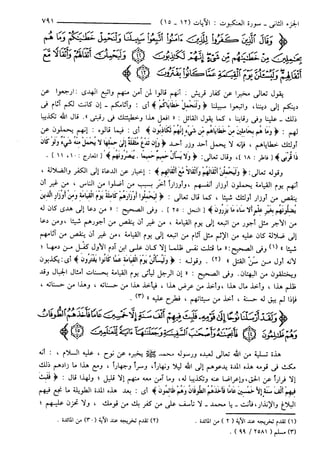 الجزء الثانى - سورة العنكبوت : الآيات (١٢ - ١٥)
٧٩١
﴿ وَقَالَ الَّذِينَ كَفَرُوا لِلَّذِينَ آمَنُوا اتَّبِعُوا سَبِيلَنَا وَلْنَحْمِلْ خَطَايَاكُمْ وَمَا هُم
بِحَامِلِينَ مِنْ خَطَايَاهُم مِّن شَيْءٍ إِنَّهُمْ لَكَاذِبُونَ ﴿١٢﴾ وَلَيَحْمِلُنَّ أَثْقَالَهُمْ وَأَثْقَالًا مَّعَ
أَثْقَالِهِمْ وَلَيُسْأَلُنَّ يَوْمَ الْقِيَامَةِ عَمَّا كَانُوا يَفْتَرُونَ ﴿١٣﴾
يقول تعالى مخبرا عن كفار قريش : أنهم قالوا لمن آمن منهم واتبع الهدى : ارجعوا عن
دينكم إلى ديننا، واتبعوا سبيلنا ﴿ وَلْنَحْمِلْ خَطَايَاكُمْ ﴾ أى : وآثامكم - إن كانت لكم آثام فى
ذلك - علينا وفى رقابنا ، كما يقول القائل : « افعل هذا وخطيئتك فى رقبتى » . قال الله تكذيبا
لهم : ﴿ وَمَا هُم بِحَامِلِينَ مِنْ خَطَايَاهُم مِّن شَيْءٍ إِنَّهُمْ لَكَاذِبُونَ ﴾ أى : فيما قالوه : إنهم يحملون عن
أولئك خطاياهم ، فإنه لا يحمل أحد وزر أحد ﴿ وَإِن تَدْعُ مُثْقَلَةٌ إِلَى حِمْلِهَا لا يُحْمَلْ مِنْهُ شَيْءٌ وَلَوْ كَانَ
ذَا قُرْبَى ﴾ [ فاطر : ١٨ ] ، وقال تعالى: ﴿ وَلا يَسْأَلُ حَمِيمٌ حَمِيمًا . يُبَصَّرُونَهُمْ ﴾ [ المعارج : ١٠ ، ١١ ] .
وقوله تعالى : ﴿ وَلَيَحْمِلُنَّ أَثْقَالَهُمْ وَأَثْقَالًا مَّعَ أَثْقَالِهِمْ ﴾ : إخبار عن الدعاة إلى الكفر والضلالة ،
أنهم يوم القيامة يحملون أوزار أنفسهم ، وأوزاراً أخر بسبب من أضلوا من الناس ، من غير أن
ينقص من أوزار أولئك شيئا ، كما قال تعالى : ﴿ لِيَحْمِلُوا أَوْزَارَهُمْ كَامِلَةً يَوْمَ الْقِيَامَةِ وَمِنْ أَوْزَارِ الَّذِينَ
يُضِلُّونَهُم بِغَيْرِ عِلْمٍ أَلا سَاءَ مَا يَزِرُونَ ﴾ [ النحل : ٢٥ ] . وفى الصحيح : « من دعا إلى هدى كان له
من الأجر مثل أجور من اتبعه إلى يوم القيامة ، من غير أن ينقص من أجورهم شيئا ،ومن دعا
إلى ضلالة كان عليه من الإثم مثل آثام من اتبعه إلى يوم القيامة، من غير أن ينقص من آثامهم
شيئا » (١) وفى الصحيح: « ما قتلت نفس ظلما إلا كان على ابن آدم الأول كفل من دمها ؛
لأنه أول من سن القتل » (٢) . وقوله : ﴿ وَلَيُسْأَلُنَّ يَوْمَ الْقِيَامَةِ عَمَّا كَانُوا يَفْتَرُونَ ﴾ أى : يكذبون
ويختلقون من البهتان. وفى الصحيح : « إن الرجل ليأتى يوم القيامة بحسنات أمثال الجبال وقد
ظلم هذا ، وأخذ مال هذا ، وأخذ من عرض هذا ، فيأخذ هذا من حسناته ، وهذا من حسناته ،
فإذا لم يبق له حسنة ، أخذ من سيئاتهم ، فطرح عليه » (٣) .
﴿ وَلَقَدْ أَرْسَلْنَا نُوحًا إِلَى قَوْمِهِ فَلَبِثَ فِيهِمْ أَلْفَ سَنَةٍ إِلَّا خَمْسِينَ عَامًا فَأَخَذَهُمُ الطُّوفَانُ
وَهُمْ ظَالِمُونَ ﴿١٤﴾ فَأَنجَيْنَاهُ وَأَصْحَابَ السَّفِينَةِ وَجَعَلْنَاهَا آيَةً لِّلْعَالَمِينَ ﴿١٥﴾
هذه تسلية من الله تعالى لعبده ورسوله محمد ﷺ يخبره عن نوح ، عليه السلام ، : أنه
مكث فى قومه هذه المدة يدعوهم إلى الله ليلا ونهاراً، وسراً وجهاراً ، ومع هذا ما زادهم ذلك
إلا فراراً عن الحق، وإعراضا عنه وتكذيبا له، وما آمن معه منهم إلا قليل ؛ ولهذا قال : ﴿ فَلَبِثَ
فِيهِمْ أَلْفَ سَنَةٍ إِلَّا خَمْسِينَ عَامًا فَأَخَذَهُمُ الطُّوفَانُ وَهُمْ ظَالِمُونَ ﴾ أى : بعد هذه المدة الطويلة ما نجع فيهم
البلاغ والإنذار، فأنت ـ يا محمد ـ لا تأسف على من كفر بك من قومك ، ولا تحزن عليهم ؛
(١) تقدم تخريجه عند الآية (٢) من المائدة . (٢) تقدم تخريجه عند الآية (٣٠) من المائدة .
(٣) مسلم ( ٢٥٨١ / ٩٩ ) .